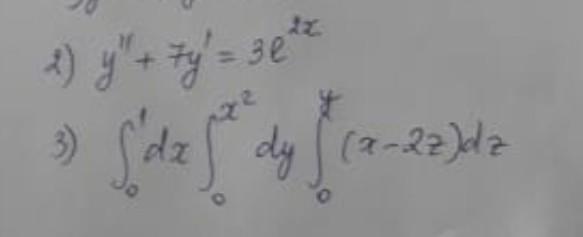 2) y'' + 7y' = 3e^{2x}
3) ∫_0^1 dx ∫_0^{x^2} dy ∫_0^y (x-2z)dz